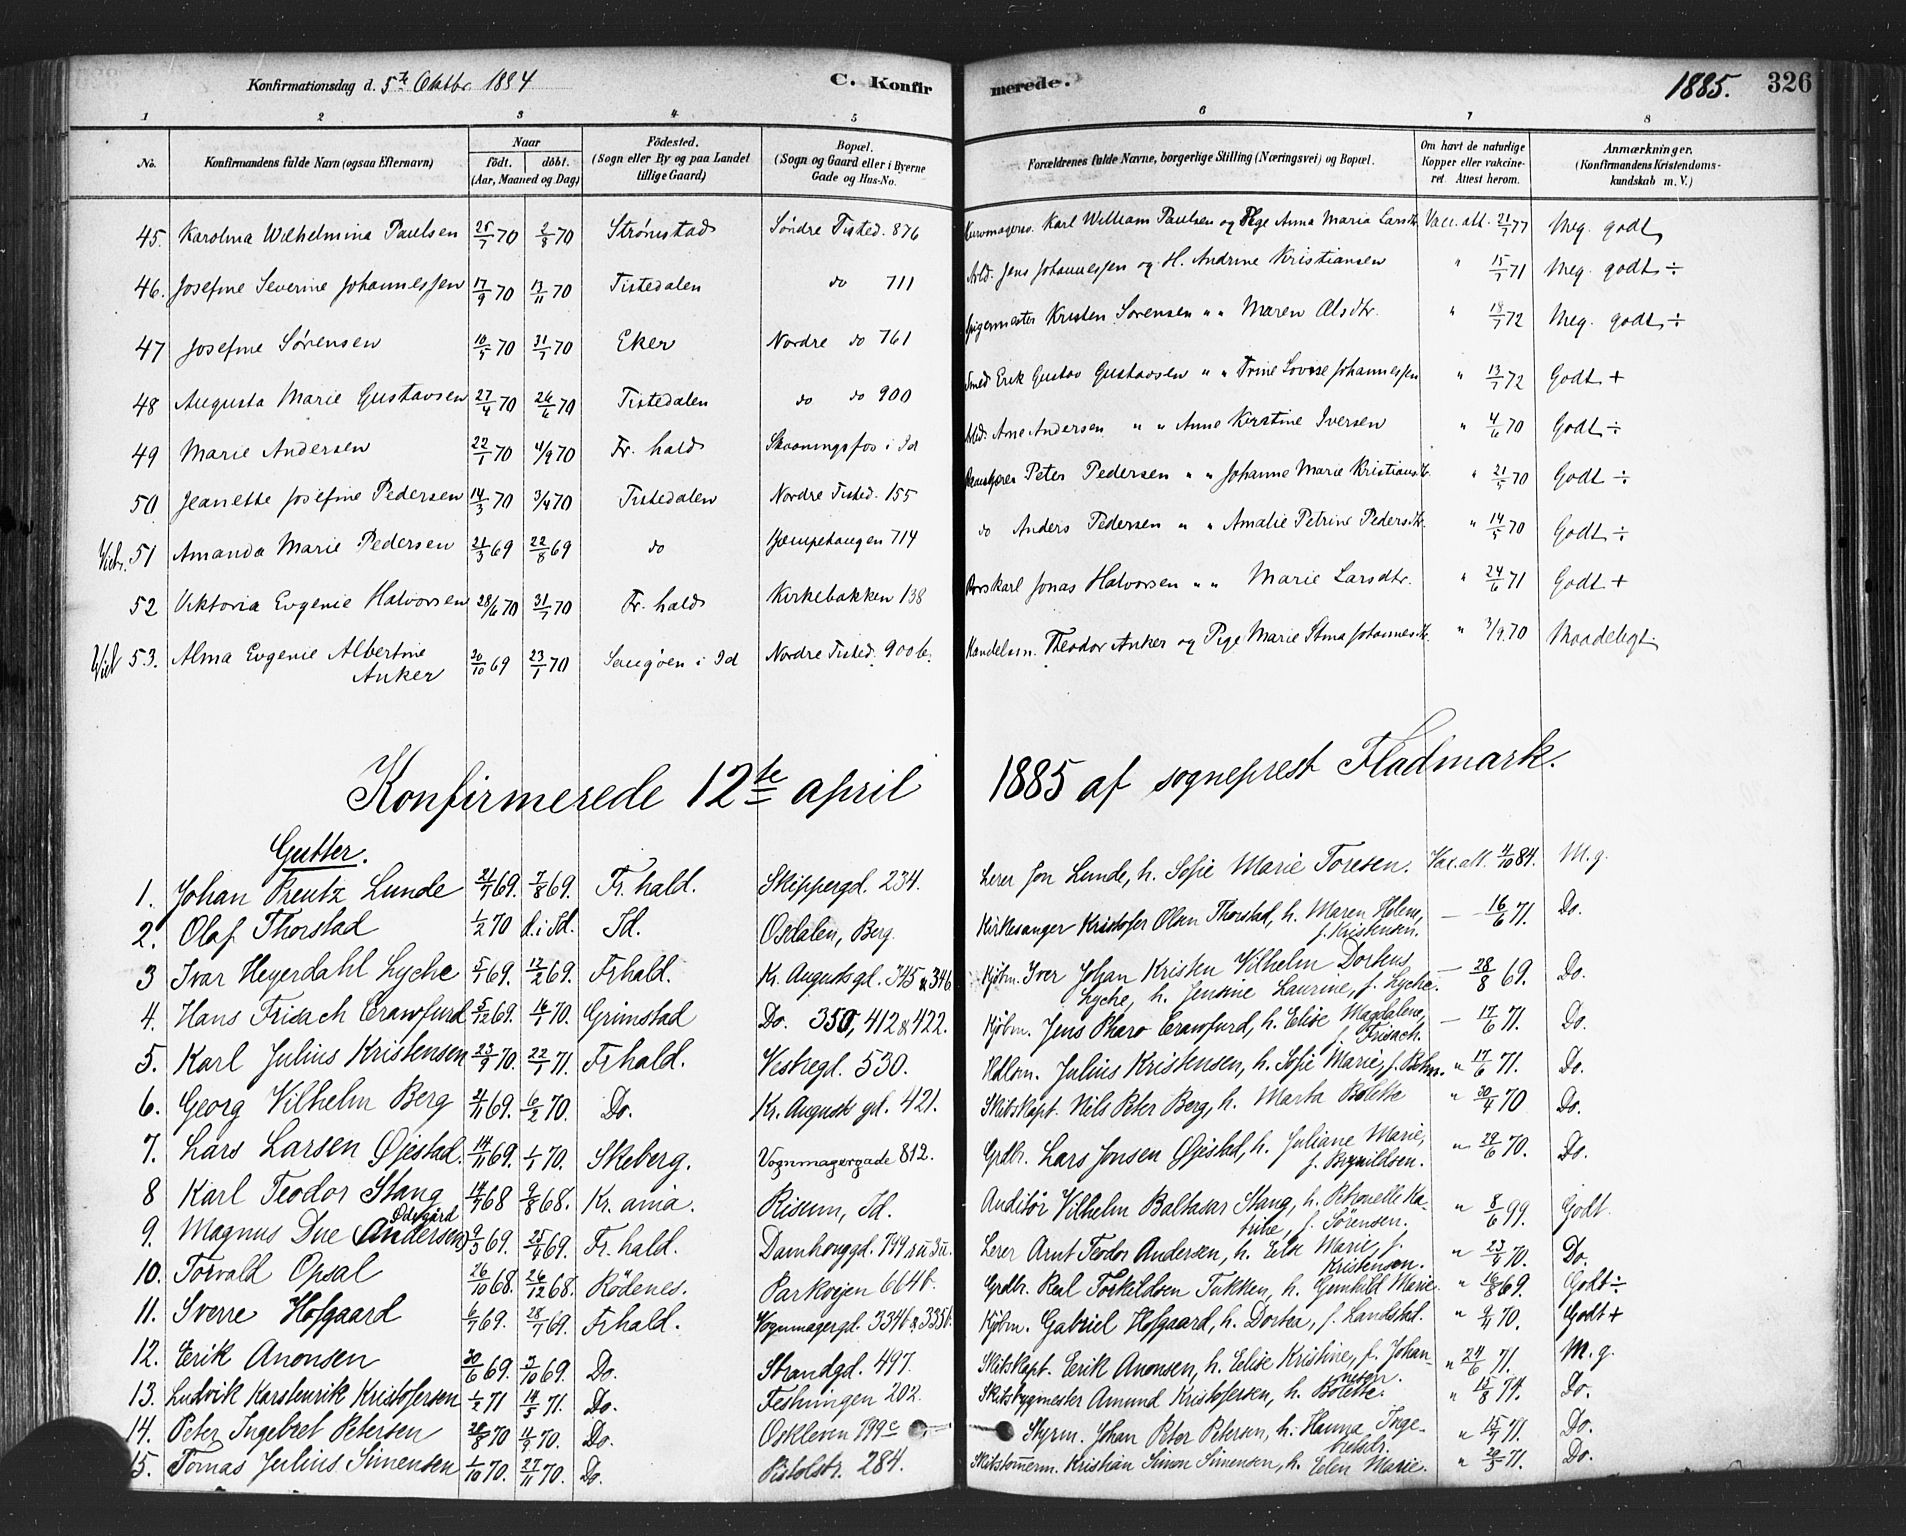 Konfirmationsdag d. 5te Oktbr. 1884 C. Konfirmerede. 1885. 326
1 2 3 4 5 6 7 8
No. Konfirmandens fulde Navn (ogsaa Efternavn) Naar födt. döbt. (Aar, Maaned og Dag) Födested. (Sogn eller By og paa Landet tillige Gaard) Bopæl. (Sogn og Gaard eller i Byerne Gade og Hus-No. Forældrenes fulde Navne, borgerlige Stilling (Næringsvei) og Bopæl. Om havt de naturlige Kopper eller vakcineret. Attest herom. Anmærkninger, (Konfirmandens Kristendomskundskab m. V.)
45. Karolina Wilhelmina Paulsen 25/7 70 2/8 70 Strømstad Søndre Tisted. 876 Karl William Paulsen og Pige Anna Maria Larsdtr. Vacc. att. 21/7 77 Meg. godt
46. Josefine Severine Johannessen 17/9 70 13/11 70 Tistedalen do 711 Arbd. Jens Johannessen og H. Andrine Kristiansen " 15/7 71 Meg. godt ÷
47 Josefine Sørensen 10/5 70 31/7 70 Eker Nordre do 761 Kristen Sørensen " " Maren Olsdtr. " 18/7 72 Meg. godt ÷
48 Augusta Marie Gustavsen 27/4 70 26/6 70 Tistedalen do do 900 Smed Erik Gustav Gustavsen " " Trine Lovise Johannessen " 13/7 72 Godt +
49 Marie Andersen 22/1 70 4/9 70 Fr. hald Skaaningsfos i Id Arbd. Arne Andersen " " Anne Kirstine Iversen " 4/6 70 Godt ÷
50 Jeanette Josefine Pedersen 14/3 70 3/4 70 Tistedalen Nordre Tisted. 155 Peter Pedersen " " Johanne Marie Kristiansdtr. " 21/5 70 Godt ÷
Vidr. 51 Amanda Marie Pedersen 21/3 69 22/8 69 do Kjempehaugen 714 do Anders Pedersen " " Amalie Petrine Pedersdtr. " 14/5 70 Godt ÷
52 Viktoria Evgenie Halvorsen 28/6 70 31/7 70 Fr. hald Kirkebakken 138 Jonas Halvorsen " " Marie Larsdtr. " 24/6 71 Godt +
Vid 53. Alma Evgenie Albertine 20/10 69 23/1 70 Saugøen i Id Nordre Tisted. 900 b. Handelsm. Theodor Anker og Pige Marie Stina Johannesdtr. " 3/9 70 Maadeligt
Anker
Konfirmerede 12te april 1885 af sogneprest Fladmark.
Gutter.
1. Johan Preutz Lunde 21/7 69. 7/8 69. Fr. hald. Skippergd. 234. Lerer Jon Lunde, h. Sofie Marie Toresen. Vac. att. 4/10 84. M. g.
2. Olaf Thorstad 1/2 70 d. i Id. Id. Osdalen, Berg. Kirkesanger Kristofer Olsen Thorstad, h. Maren Helene, f. Kristensen. — 16/6 71. Do.
3 Ivar Heyerdahl Lyche 5/1 69. 12/2 69. Frhald. Kr. Augusts gd. 345 & 346 Kjöbm. Iver Johan Kristen Vilhelm Dorteus Lyche, h. Jensine Laurine, f. Lyche. — 28/8 69. Do.
4. Hans Frisach Crawfurd 5/12 69. 16/1 70. Grimstad Do. 350, 412 & 422. Kjöbm. Jens Pharo Crawfurd, h. Elise Magdalene, f. Frisach. — 17/6 71. Do.
5. Karl Julius Kristensen 23/9 70. 22/1 71. Frhald. Vestregd. 530. Hdlsm. Julius Kristensen, h. Sofie Marie, f. Bohm. " 17/6 71. Do.
6. Georg Vilhelm Berg 2/11 69. 6/2 70. Do. Kr. Augusts gd. 421. Skibskapt. Nils Peter Berg, h. Marta Bolette " 30/4 70 Do.
7. Lars Larsen Øjestad. 14/11 69. 1/1 70. Skeberg. Vognmagergade 812. Grdbr. Lars Jonsen Øjestad, h. Juliane Marie, f. Brynildsen. " 29/6 70. Do.
8 Karl Teodor Stang 14/7 68 9/8 68. Kr. ania. Risum, Id. Auditör Vilhelm Baltasar Stang, h. Petronelle Katrine, f. Sörensen. " 8/6 99. Godt.
9. Magnus Due (Andersen) Ödegård 9/3 69. 25/4 69. Fr. hald. Damhouggd. 199 Lerer Arnt Teodor Andersen, h. Elise Marie, f. Kristensen. " 23/4 70. Do.
10. Torvald Opsal 26/10 68. 26/12 68. Rödenes. Parkvejen 664 b. Grdbr. Real Torkildsen Tukken, h. Gunhild Marie " 16/8 69. Godt ÷
11. Sverre Hofgaard 6/7 69. 28/7 69. Frhald. Vognmagergd. 334 b. & 335 b. Kjöbm. Gabriel Hofgaard, h. Dortea, f. Landstad. " 9/4 70. Godt +
12. Erik Anonsen 30/6 69. 3/10 69. Do. Strandgd. 497. Skibskapt. Erik Anonsen, h. Elise Kristine, f. Johannesen. " 24/6 71. M. g.
13. Ludvik Karstenrik Kristofersen 1/2 71 14/5 71. Do. Festningen 202. Skibsbygmester Amund Kristofersen, h. Bolette. " 15/8 74. Do.
14. Peter Ingebret Petersen 28/8 70 4/9 70. Do. Oskleven 199 c Styrm. Johan Peter Petersen, h. Hanna Ingebretsdr. " 15/7 71. Do.
15. Tomas Julius Simensen 1/10 70. 27/11 70. Do. Pistolstr. 284. Skibstömerm. Kristian Simon Simensen, h. Elen Marie. " 20/3 71. Do.